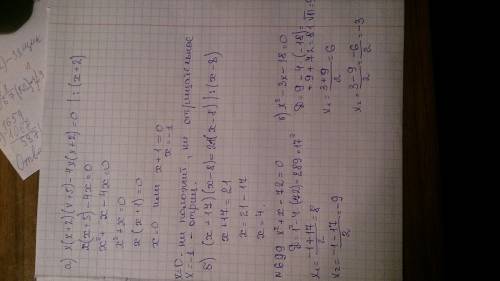 а) x(x+2)(x+5)-4x(x+2)=0 |:(x+2)
x(x+5)-4x=0
x²+x-4x=0
x²+x=0
x(x+1)=0
x=0 или x+1=0
x=-1
x=0 - ни полож
x=-1 - отриц.
б) (x+17)(x-8)=21(x-8)|:(x-8)
x+17=21
x=21-17
x=4.
№699 x²+x-72=0
D=1²-4·(-72)=289=17²
x₁=(-1+17)/2=8
x₂=(-1-17)/2=-9
в) x²-3x-18=0
D=9-4·(-18)=
=9+72=81
x₁=(3+9)/2=6
x₂=(3-9)/2=-6/2=-3